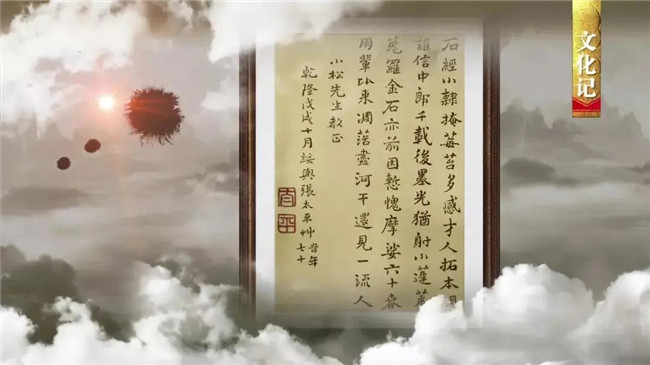 文化记
石經小隸掩莓苔多感才人拓本
誰信中郎千載後墨光猶射小蓬萊
蒐羅金石亦前因慙愧摩娑六十春
朋輩比來凋落盡河干還見一流人
小松先生教正
乾隆戊戌十月綏輿張太平艸
年七十